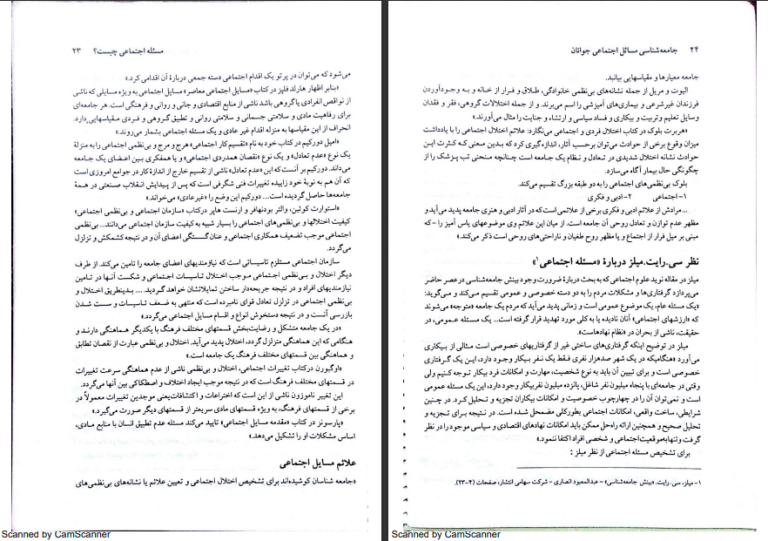 مسئله اجتماعی چیست؟ ۲۳
می‌شود که می‌توان در پرتو یک اقدام اجتماعی دسته جمعی دربارهٔ آن اقدامی کرد.»
«بنابر اظهار هارلد فلپز در کتاب «مسایل اجتماعی معاصر» مسایل اجتماعی به ویژه مسایلی که ناشی
از نواقص انفرادی یا گروهی باشد ناشی از منابع اقتصادی و جانی و روانی و فرهنگی است. هر جامعه‌ای
برای رفاهیت مادی و سلامتی جسمانی و سلامتی روانی و تطبیق گروهی و فردی مقیاسهایی دارد.
انحراف از این مقیاسها به منزله اقدام غیر عادی و یک مسئله اجتماعی بشمار می‌روند.»
«امیل دورکیم در کتاب خود به نام «تقسیم کار اجتماعی» هرج و مرج و بی‌نظمی اجتماعی را به منزله
یک نوع «عدم تعادل» و یک نوع «نقصان همدردی اجتماعی» و یا همفکری بین اعضای یک جامعه
می‌داند. دورکیم بر آنست که این «عدم تعادل» ناشی از تقسیم خارج از اندازهٔ کار در جوامع امروزی است
که آن هم به نوبهٔ خود زاییده تغییرات فنی شگرفی است که پس از پیدایش انقلاب صنعتی در همهٔ
جامعه‌ها حاصل گردیده است... دورکیم این وضع را «غیرعادی» می‌خواند»
«استوارت کوئین، والتر بودنهافر و ارنست هاپر در کتاب «سازمان اجتماعی و بی‌نظمی اجتماعی»
کیفیت اختلالها و بی‌نظمی‌های اجتماعی را بسیار شبیه به کیفیت سازمان اجتماعی می‌دانند... بی‌نظمی
اجتماعی موجب تضعیف همکاری اجتماعی و عنان‌گسستگی اعضای آن و در نتیجه کشمکش و تزلزل
می‌گردد.
سازمان اجتماعی مستلزم تاسیساتی است که نیازمندیهای اعضای جامعه را تامین می‌کند. از طرف
دیگر اختلال و بی‌نظمی اجتماعی موجب اختلال تاسیسات اجتماعی و شکست آنها در تامین
نیازمندیهای افراد و در نتیجه جریحه‌دار ساختن تمایلاتشان خواهد گردید... بدینطریق اختلال و
بی‌نظمی اجتماعی در تزلزل تعادل قوای نامبرده است که منتهی به ضعف تاسیسات و سست شدن
بازرسی آنست و در نتیجه دستخوش انواع و اقسام مسایل اجتماعی می‌گردد.»
«در یک جامعه متشکل و رضایت‌بخش قسمتهای مختلف فرهنگ با یکدیگر هماهنگی دارند و
هنگامی که این هماهنگی متزلزل گردد، اختلال پدید می‌آید. اختلال و بی‌نظمی عبارت از نقصان تطابق
و هماهنگی بین قسمتهای مختلف فرهنگ یک جامعه است.»
«اوگبورن در کتاب تغییرات اجتماعی، اختلال و بی‌نظمی ناشی از عدم هماهنگی سرعت تغییرات
در قسمتهای مختلف فرهنگ است که در نتیجه موجب ایجاد اختلاف و اصطکاکی بین آنها می‌گردد.
این تغییر ناموزون ناشی از این است که اختراعات و اکتشافات یعنی موجدین تغییرات معمولاً در
برخی از قسمتهای فرهنگ، به ویژه قسمتهای مادی سریعتر از قسمتهای دیگر صورت می‌گیرد.»
«پارسونز در کتاب «مقدمه مسایل اجتماعی» تایید می‌کند مسئله عدم تطبیق انسان با منابع مادی،
اساس مشکلات او را تشکیل می‌دهد.»
علائم مسایل اجتماعی
«جامعه شناسان کوشیده‌اند برای تشخیص اختلال اجتماعی و تعیین علائم یا نشانه‌های بی‌نظمی‌های
Scanned by CamScanner
۲۴ جامعه‌شناسی مسائل اجتماعی جوانان
جامعه معیارها و مقیاسهایی بیابند.
الیوت و مریل از جمله نشانه‌های بی‌نظمی خانوادگی، طلاق و فرار از خانه و به وجودآوردن
فرزندان غیرشرعی و بیماری‌های آمیزشی را اسم می‌برند. و از جمله اختلالات گروهی، فقر و فقدان
وسایل تعلیم و تربیت و بیکاری و فساد سیاسی و ارتشاء و جنایت را مثال می‌آورند»
«هربرت بلوک در کتاب اختلال فردی و اجتماعی می‌نگارد: علائم اختلال اجتماعی را با یادداشت
میزان وقوع برخی از حوادث می‌توان برحسب آثار، اندازه‌گیری کرد که بدین معنی که کثرت این
حوادث نشانه اختلال شدیدی در تعادل و نظام یک جامعه است چنانچه منحنی تب پزشک را از
چگونگی حال بیمار آگاه می‌سازد.
بلوک بی‌نظمی‌های اجتماعی را به دو طبقه بزرگ تقسیم می‌کند.
۱- اجتماعی ۲- ادبی و فکری
... مرادش از علائم ادبی و فکری برخی از علائمی است که در آثار ادبی و هنری جامعه پدید می‌آید و
مظهر عدم توازن و تعادل روحی آن جامعه است. از میان این علائم وی موضوعهای یاس آمیز را – که
مبنی بر میل فرار از اجتماع و یا مظهر روح طغیان و ناراحتی‌های روحی است ذکر می‌کند.»
نظر سی.رایت.میلز دربارهٔ «مسئله اجتماعی¹»
میلز در مقاله نوید علوم اجتماعی که به بحث دربارهٔ ضرورت وجود بینش جامعه‌شناسی در عصر حاضر
می‌پردازد گرفتاری‌ها و مشکلات مردم را به دو دسته خصوصی و عمومی تقسیم می‌کند و می‌گوید:
«یک مسئله عام، یک موضوع عمومی است و زمانی پدید می‌آید که مردم یک جامعه «متوجه» می‌شوند
که «ارزشهای اجتماعی» آنان نادیده یا به کلی مورد تهدید قرار گرفته است... یک مسئله عمومی، در
حقیقت، ناشی از بحران در «نظام نهادها»ست.
میلز در توضیح اینکه گرفتاری‌های ساختی غیر از گرفتاریهای خصوصی است مثالی از بیکاری
می‌آورد «هنگامیکه در یک شهر صدهزار نفری فقط یک نفر بیکار وجود دارد، این یک گرفتاری
خصوصی است و برای تبیین آن باید به نوع شخصیت، مهارت و امکانات فرد بیکار توجه کنیم ولی
وقتی در جامعه‌ای با پنجاه میلیون نفر شاغل، پانزده میلیون نفر بیکار وجود دارد، این یک مسئله عمومی
است و نمی‌توان آن را در چهارچوب خصوصیات و امکانات بیکاران تجزیه و تحلیل کرد. در چنین
شرایطی، ساخت واقعی، امکانات اجتماعی بطور کلی مضمحل شده است. در نتیجه برای تجزیه و
تحلیل صحیح و همچنین ارائه راه‌حل ممکن باید امکانات نهادهای اقتصادی و سیاسی موجود را در نظر
گرفت و تنها به موقعیت اجتماعی و شخصی افراد اکتفا ننمود.»
برای تشخیص مسئله اجتماعی از نظر میلز :
۱- میلز، سی. رایت. «بینش جامعه‌شناسی» - عبدالمعبود انصاری - شرکت سهامی انتشار، صفحات (۴-۲۳).
Scanned by CamScanner